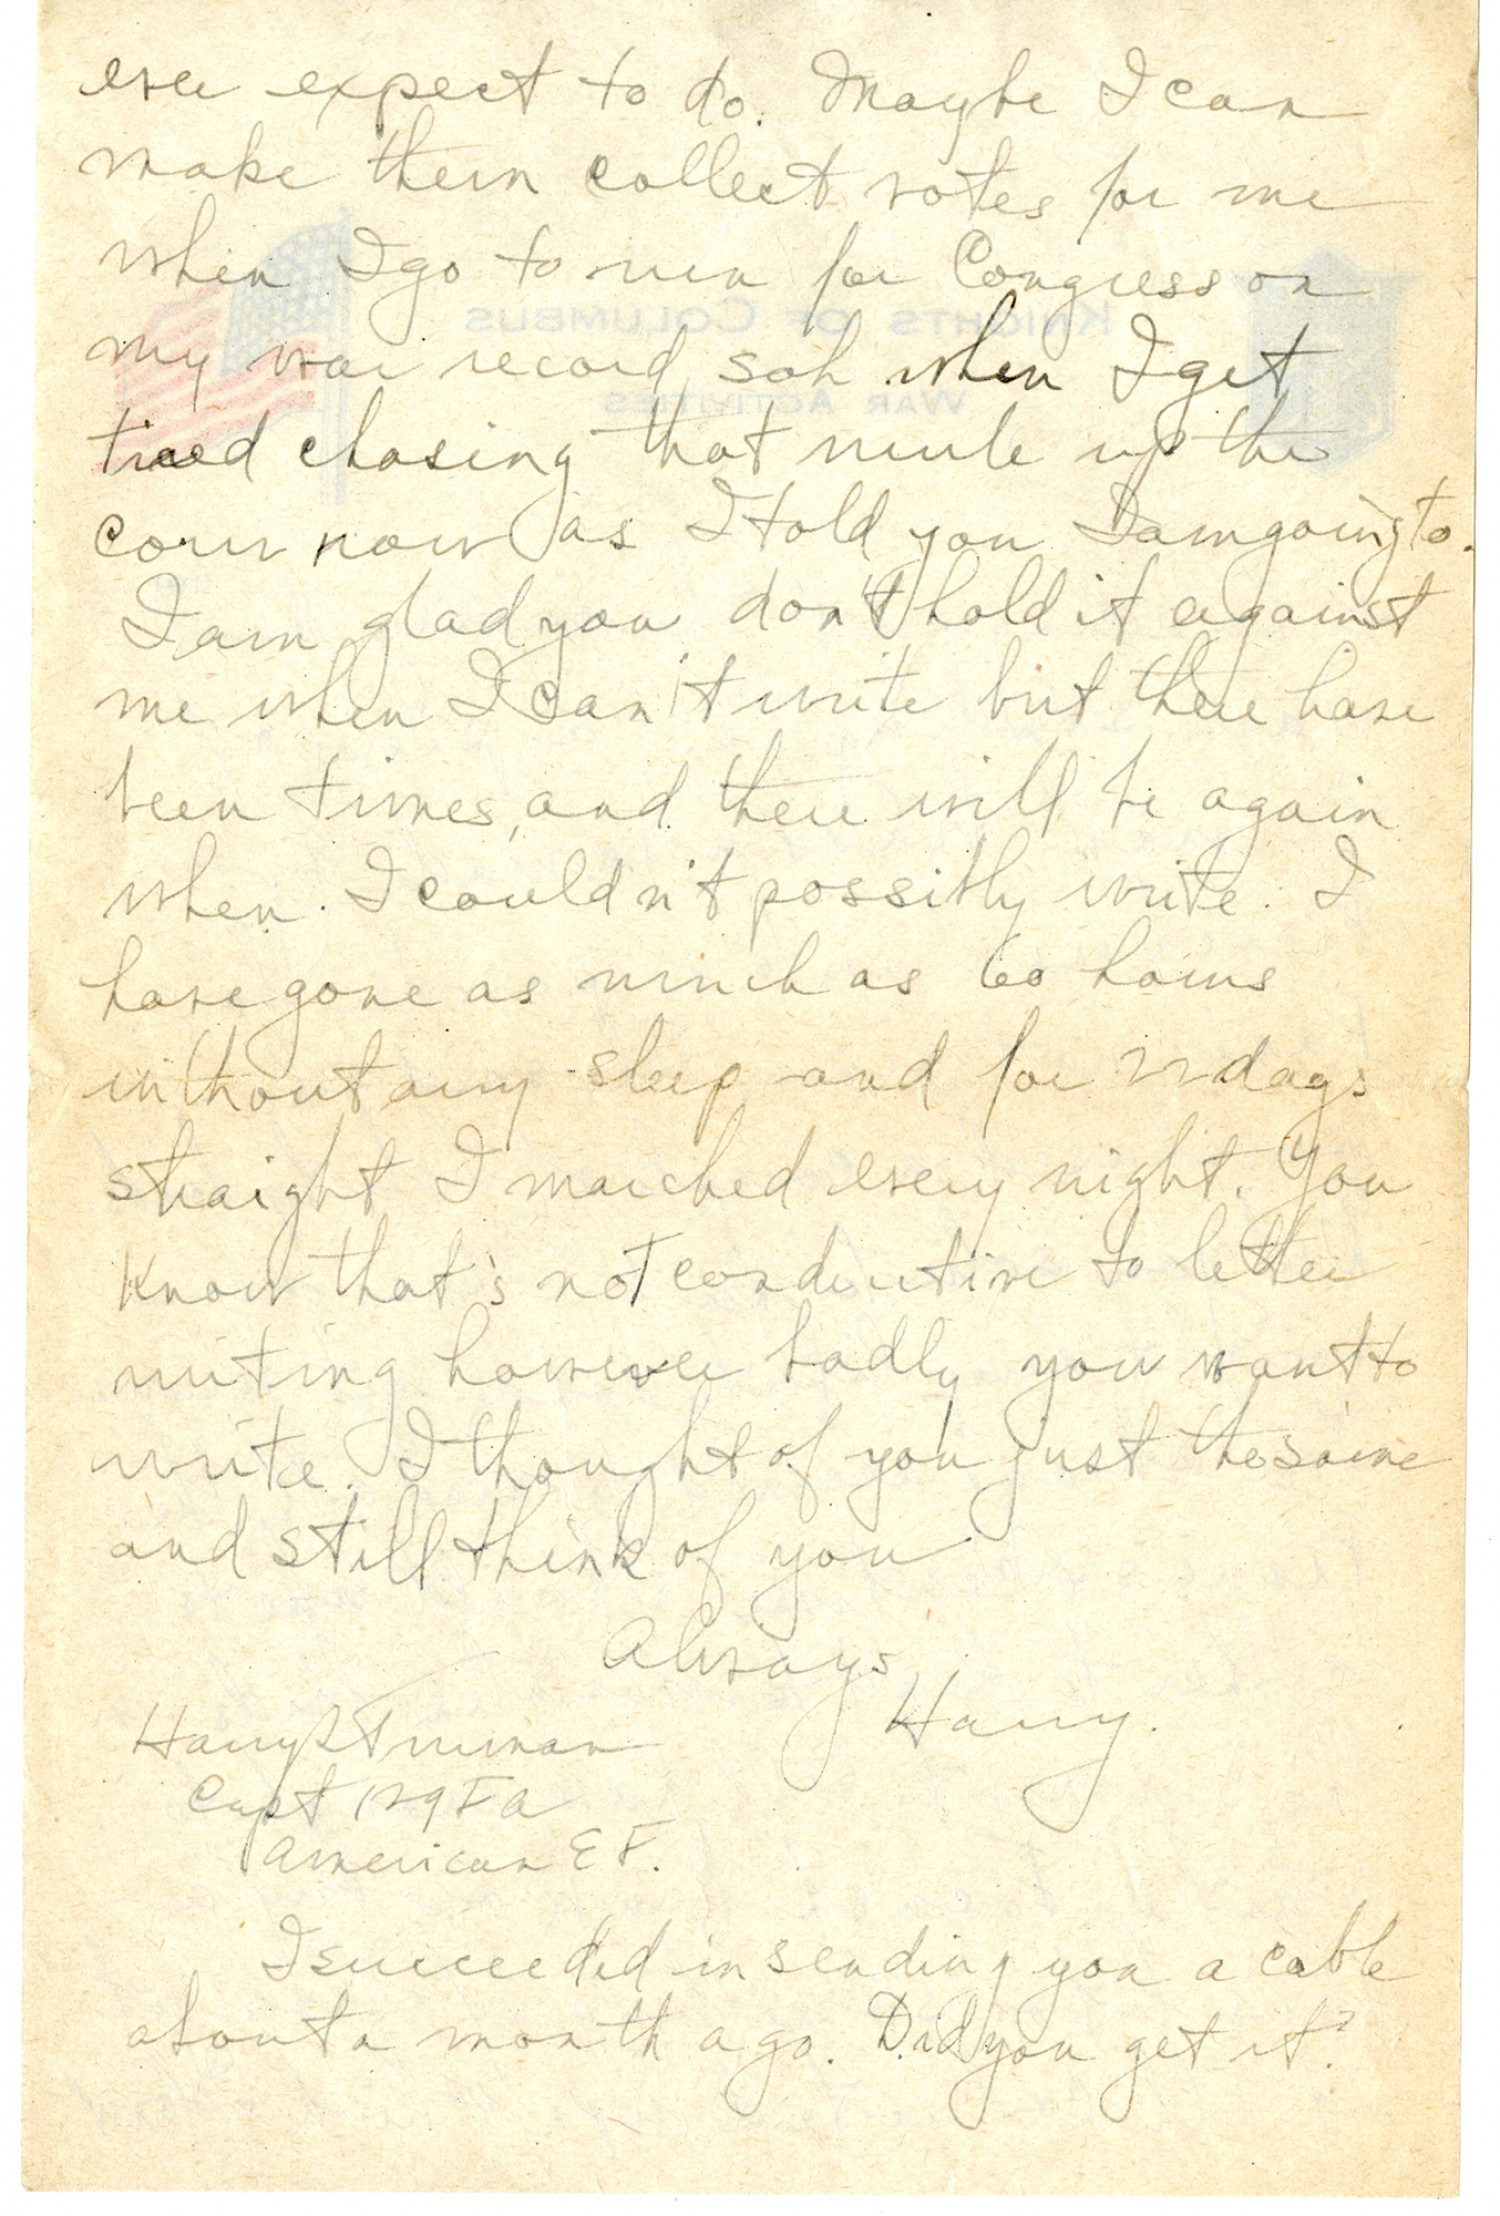 ever expect to do. Maybe I can
make them collect votes for me
when I go to run for Congress on
my war record, soh when I get
tired chasing that mule up the
corn row as I told you I am going to.
I am glad you don't hold it against
me when I can't write but there have
been times, and there will be again
when I couldn't possibly write. I
have gone as much as 60 hours
without any sleep and for 22 days
straight I marched every night. You
know that's not conductive to letter
writing however badly you want to
write. I thought of you just the same
and still think of you
Always
Harry.
Harry S Truman
Capt 129 F A
American E F.
I succeeded in sending you a cable
about a month ago. Did you get it?
KNIGHTS OF COLUMBUS
WAR ACTIVITIES